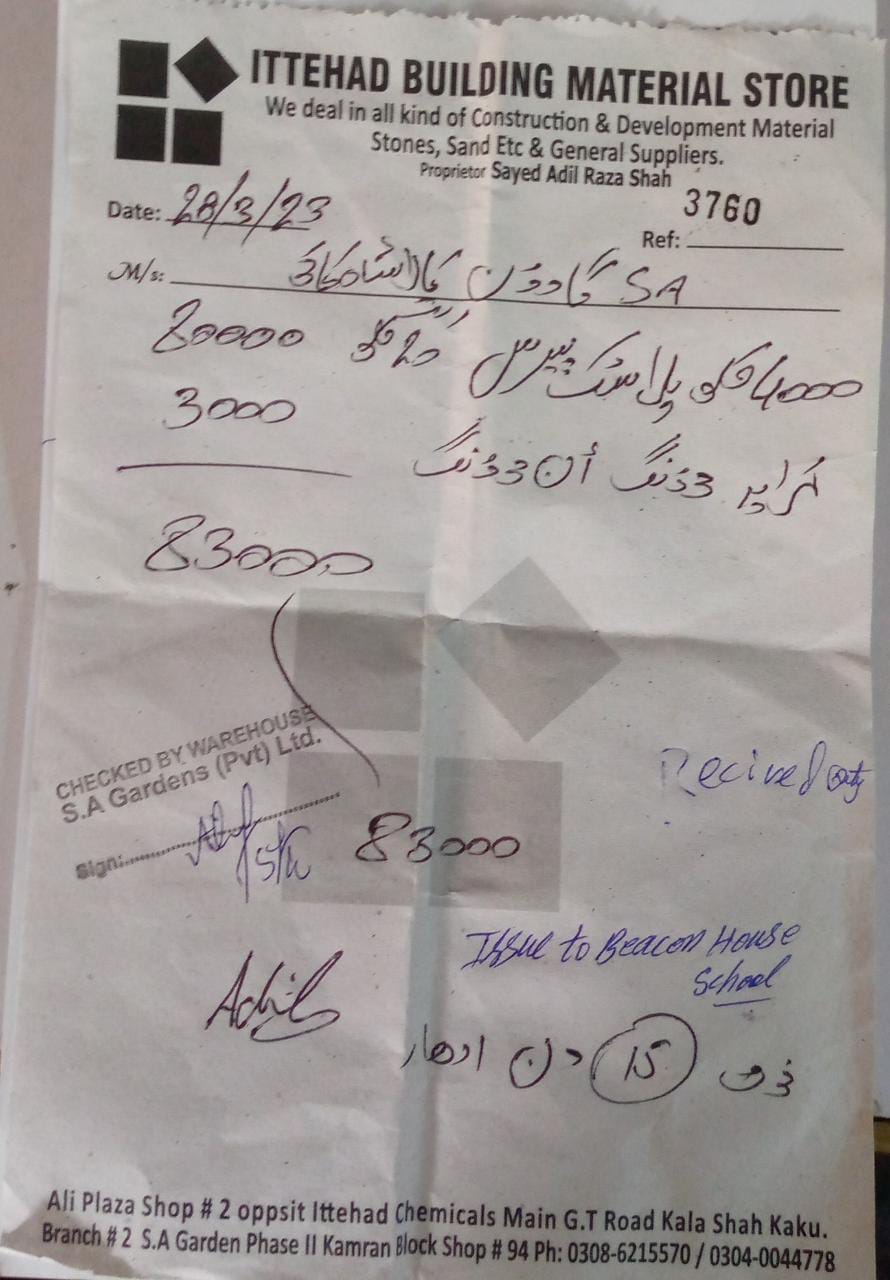 ITTEHAD BUILDING MATERIAL STORE
We deal in all kind of Construction & Development Material
Stones, Sand Etc & General Suppliers.
Proprietor Sayed Adil Raza Shah
3760
Date: 28/3/23
Ref:
M/s: SA گارڈن کالاشاہ کاکو
4000 کلو پلاسٹک پیرس 80000
کرایہ لوڈنگ ان لوڈنگ 3000
83000
CHECKED BY WAREHOUSE
S.A Gardens (Pvt) Ltd.
Sign:
Recived
83000
Issue to Beacon House
School
Adil
15 دن ادھار
Ali Plaza Shop # 2 oppsit Ittehad Chemicals Main G.T Road Kala Shah Kaku.
Branch # 2 S.A Garden Phase II Kamran Block Shop # 94 Ph: 0308-6215570 / 0304-0044778